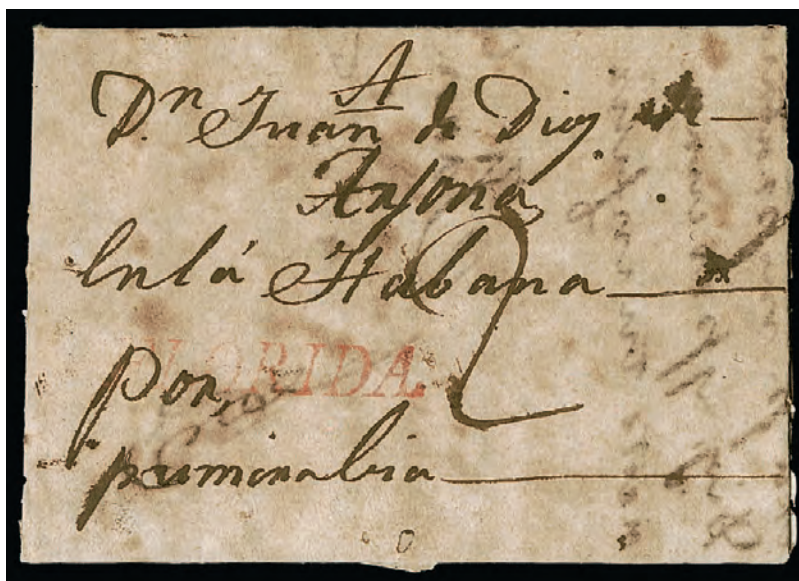 A
Dn Juan de Dioz
Ansona
En lá Habana
2
FLORIDA.
por,
primera bia